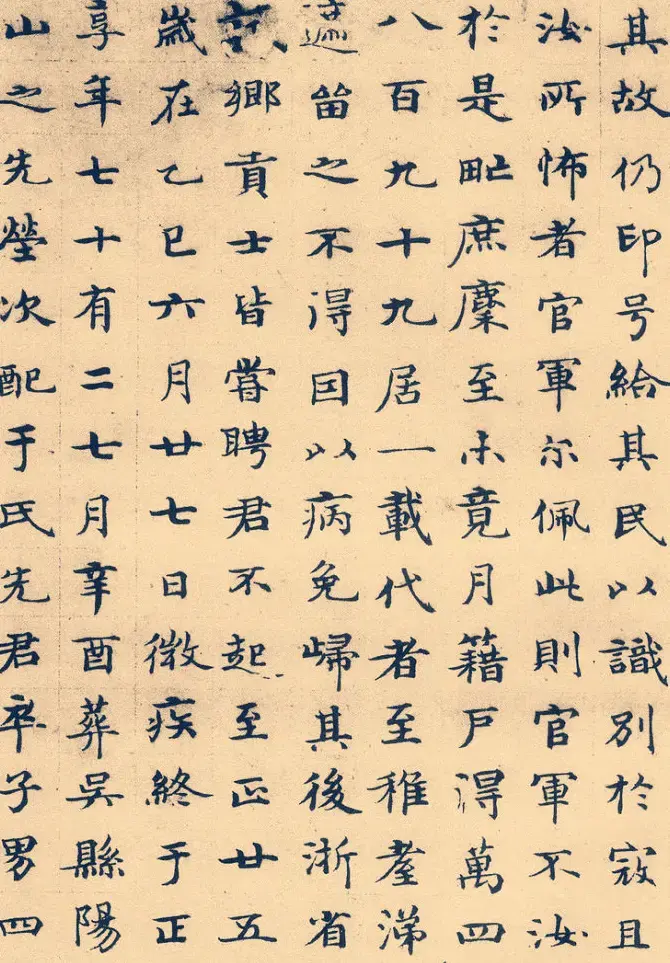 其故仍印号給其民以識別於寇且
汝所怖者官軍尔佩此則官軍不汝
於是甿庶麇至未竟月籍戶得萬四
八百九十九居一載代者至稚耋涕
留之不得囙以病免歸其後浙省
試鄉貢士皆嘗聘君不起至正廿五
歲在乙巳六月廿七日微疾終于正
享年七十有二七月辛酉葬吳縣陽
山之先塋次配于氏先君卒子男四